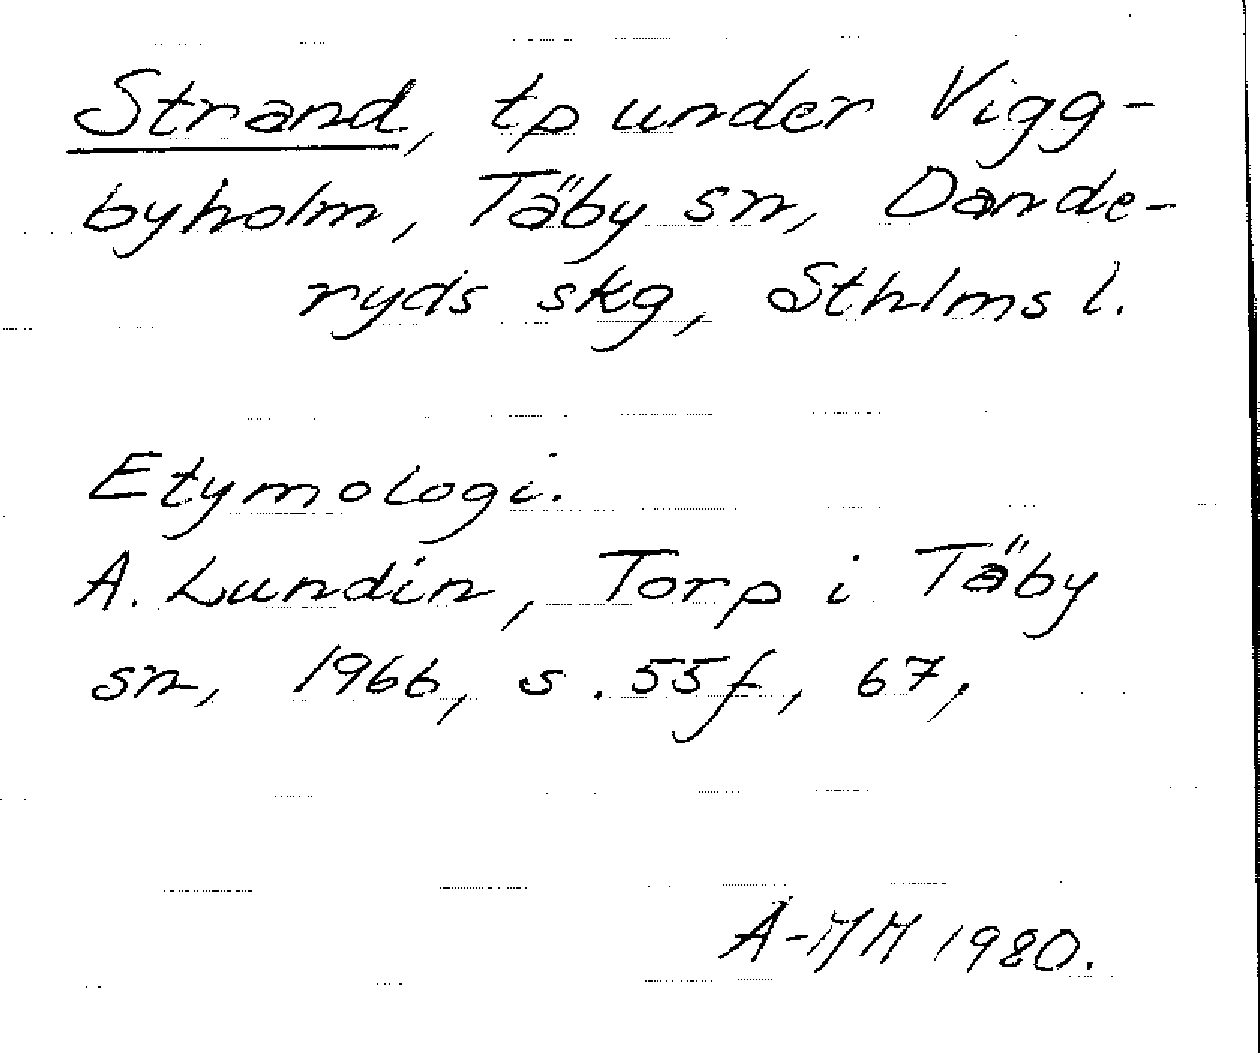 Strand, tp under Vigg-
byholm, Täby sn, Dande-
ryds skg, Sthlms l.
Etymologi.
A. Lundin, Torp i Täby
sn, 1966, s. 55f, 67,
A-MH 1980.